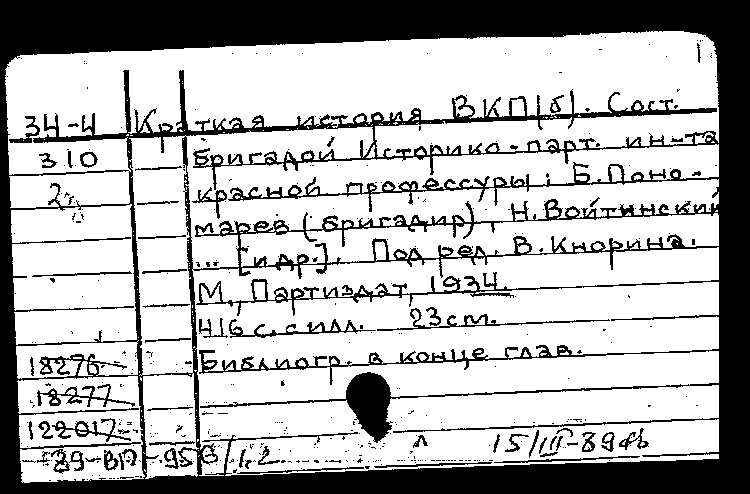 34-4 Краткая история ВКП(б). Сост.
310 бригадой Историко-парт. ин-та
2э красной профессуры: Б. Поно-
марев (бригадир), Н. Войтинский
... [и др.]. Под ред. В. Кнорина.
М., Партиздат, 1934.
416 с. с илл. 23 cm.
18276 Библиогр. в конце глав.
18277
122017
89-ВП-956/1,2 15/III-89